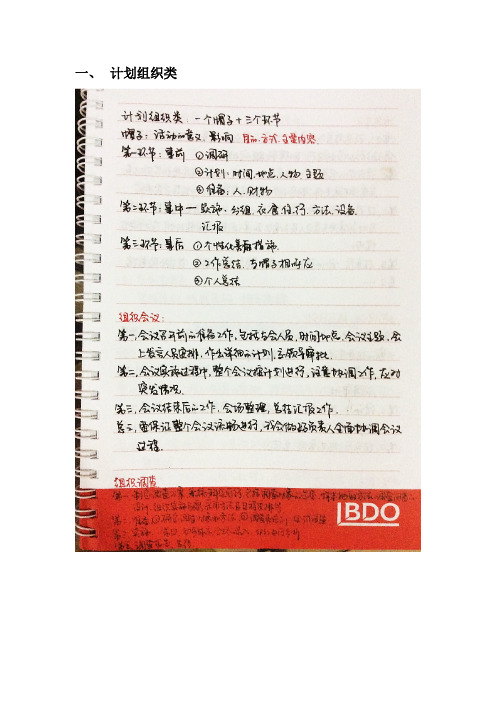 一、 计划组织类
计划组织类：一个帽子＋三个环节
帽子：活动的意义、影响 目的、方式、主要内容
第一环节：事前 ①调研
②计划：时间、地点、人物、主题
③准备：人、财、物
第二环节：事中—实施：分组、衣食住行、方法、设备
汇报
第三环节：事后 ①个性化善后措施
②工作总结，与帽子相对应
③个人总结
组织会议：
第一，会议召开前的准备工作，包括与会人员，时间地点，会议主题，会
上发言人员安排，作出详细的计划，交领导审批
第二，会议实施过程中，整个会议按计划进行，注意协调工作，应对
突发情况
第三，会议结束后的工作，会场整理，总结汇报工作
总之，要保证整个会议流畅进行，我会做好负责人全面协调会议
过程
组织调查
BDO